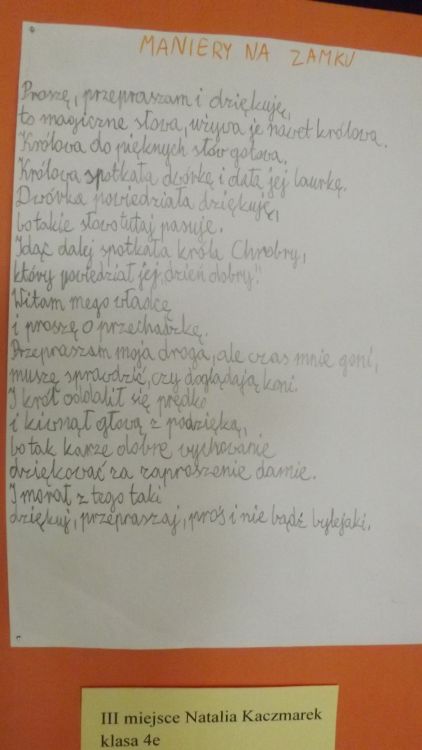 MANIERY NA ZAMKU
Proszę, przepraszam i dziękuję,
to magiczne słowa, używa je nawet królowa.
Królowa do pięknych słów gotowa.
Królowa spotkała dwórkę i dała jej laurkę.
Dwórka powiedziała dziękuję,
bo takie słowo tutaj pasuje.
Idąc dalej spotkała króla Chrobry,
który powiedział jej „dzień dobry".
Witam mego władcę
i proszę o przechadzkę.
Przepraszam moja droga, ale czas mnie goni,
muszę sprawdzić, czy doglądają koni.
I król oddalił się prędko
i kiwnął głową z podzięką,
bo tak karze dobre wychowanie
dziękować za zaproszenie damie.
I morał z tego taki
dziękuj, przepraszaj, proś i nie bądź bylejaki.
III miejsce Natalia Kaczmarek
klasa 4e